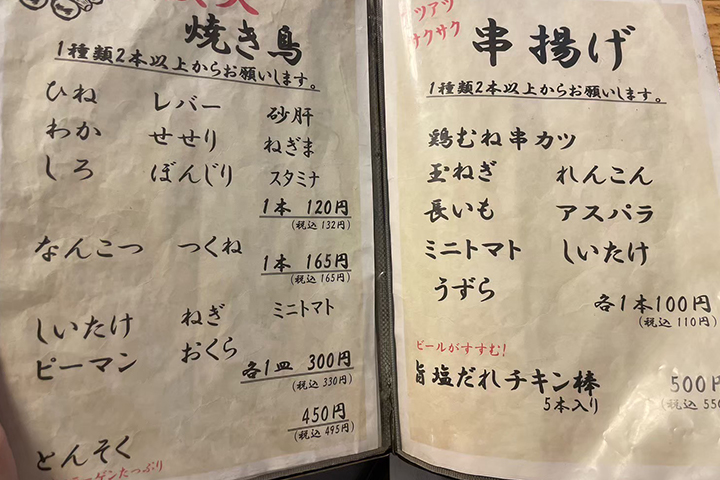 焼き鳥
1種類2本以上からお願いします。
ひね レバー 砂肝
わか せせり ねぎま
しろ ぼんじり スタミナ
1本 120円
(税込 132円)
なんこつ つくね
1本 165円
(税込 165円)
しいたけ ねぎ ミニトマト
ピーマン おくら
各1皿 300円
(税込 330円)
450円
(税込 495円)
とんそく
ーゲンたっぷり
アツアツ
サクサク
串揚げ
1種類2本以上からお願いします。
鶏むね串カツ
玉ねぎ れんこん
長いも アスパラ
ミニトマト しいたけ
うずら
各1本100円
(税込 110円)
ビールがすすむ!
旨塩だれチキン棒 500円
5本入り (税込 550